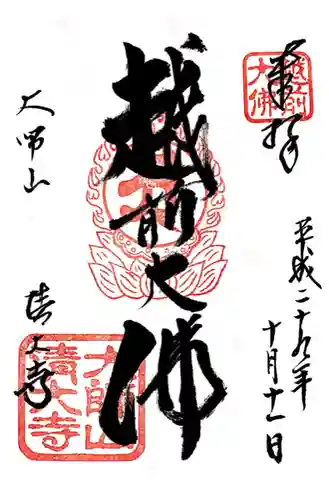 奉拝
越前大佛
平成二十九年
十月十一日
越前大佛
大師山
清大寺
大師山清大寺